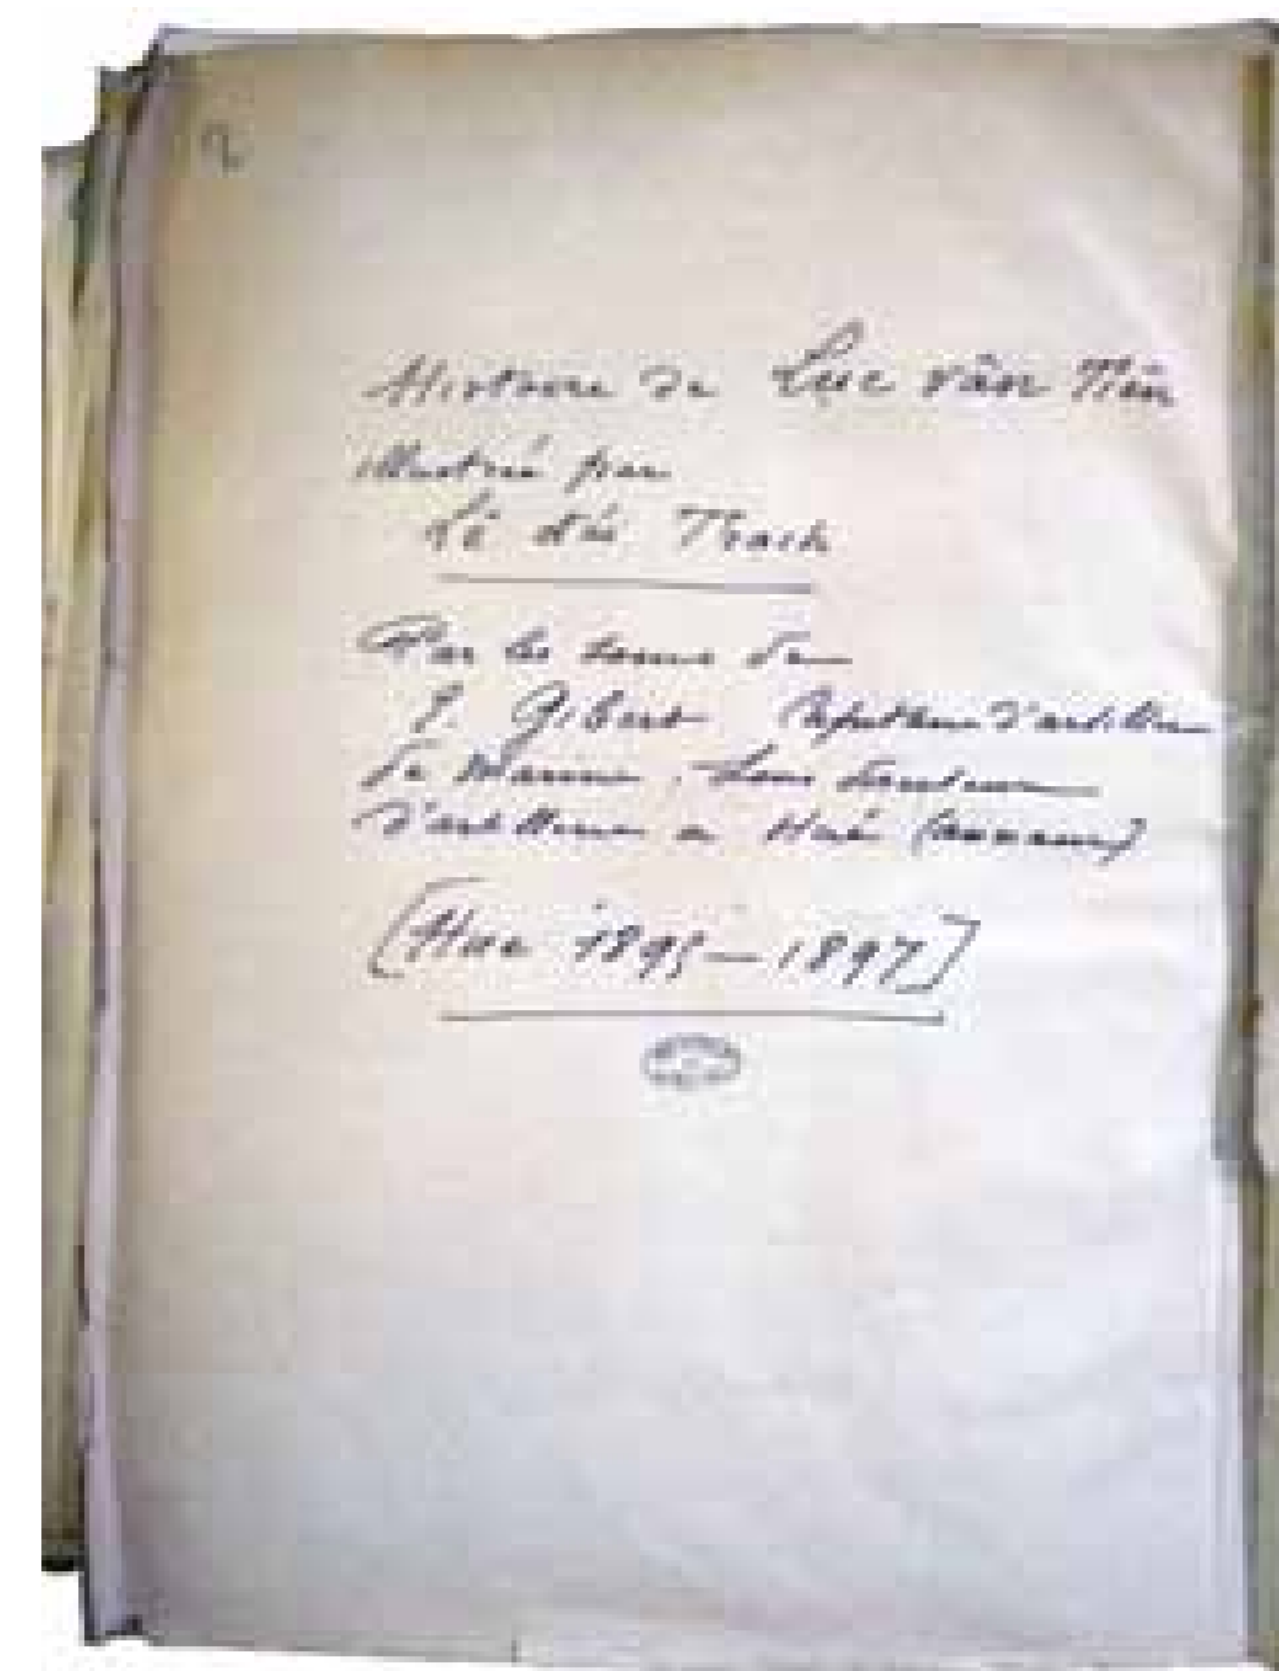 2
Histoire de Luc Vân Tiên
illustrée par
Lê đức Trach
Par les soins de
E. Gibert Capitaine d'artillerie
de Marine, Sous Directeur
d'artillerie à Hué (Annam)
[Hué 1895-1897]